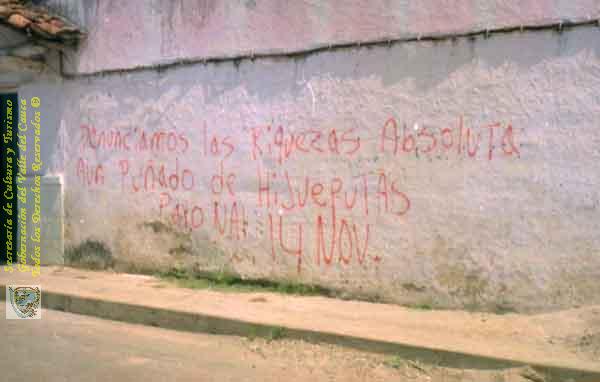 Denunciamos las Riquezas Absoluta
Aun Puñado de HIJUEPUTAS
Paro NAl 14 NOV.
Secretaria de Cultura y Turismo
Gobernación del Valle del Cauca
Todos los Derechos Reservados ©